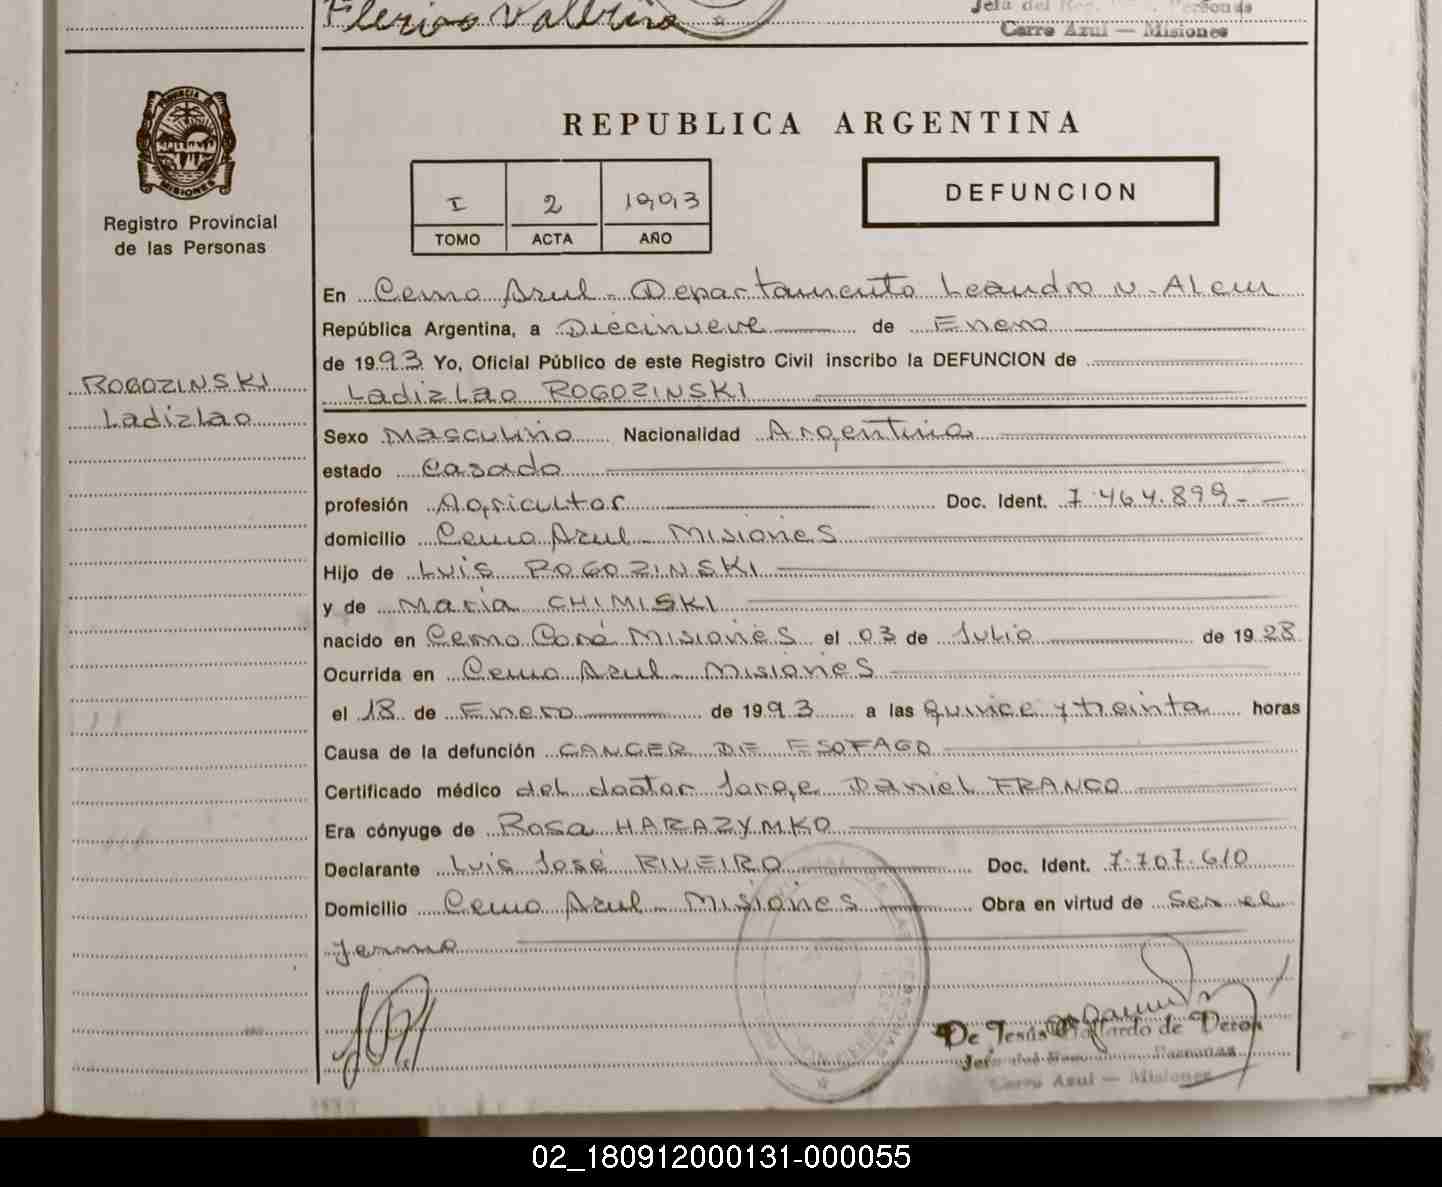 Jefa del Reg. Personas
Cerro Azul — Misiones
PROVINCIA
MISIONES
Registro Provincial
de las Personas
ROGOZINSKI
Ladizlao
REPUBLICA ARGENTINA
I 2 1993
TOMO ACTA AÑO
DEFUNCION
En Cerro Azul - Departamento Leandro N. Alem
República Argentina, a Diecinueve de Enero
de 1993 Yo, Oficial Público de este Registro Civil inscribo la DEFUNCION de
Ladizlao ROGOZINSKI
Sexo Masculino Nacionalidad Argentina
estado Casado
profesión Agricultor Doc. Ident. 7.464.899-
domicilio Cerro Azul - Misiones
Hijo de Luis ROGOZINSKI
y de Maria CHIMISKI
nacido en Cerro Corá Misiones el 03 de Julio de 1928
Ocurrida en Cerro Azul - Misiones
el 18 de Enero de 1993 a las Quince y treinta horas
Causa de la defunción CANCER DE ESOFAGO
Certificado médico del doctor Jorge Daniel FRANCO
Era cónyuge de Rosa HARAZYMKO
Declarante Luis José RIVEIRO Doc. Ident. 7.707.610
Domicilio Cerro Azul - Misiones Obra en virtud de Ser el
Yerno
De Jesús Gallardo de Veron
Jefa del Personas
Cerro Azul — Misiones
02_180912000131-000055